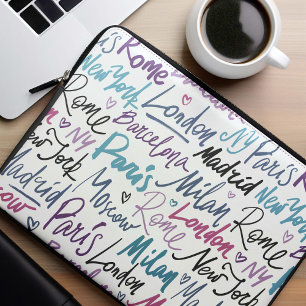 is Rome Barcelona
New York London NY Paris
Rome
NY Barcelona Madrid
New York Paris Milan London
Madrid Moscow Rome London Rome
Moscow Paris Milan New York
Barcelona London New York